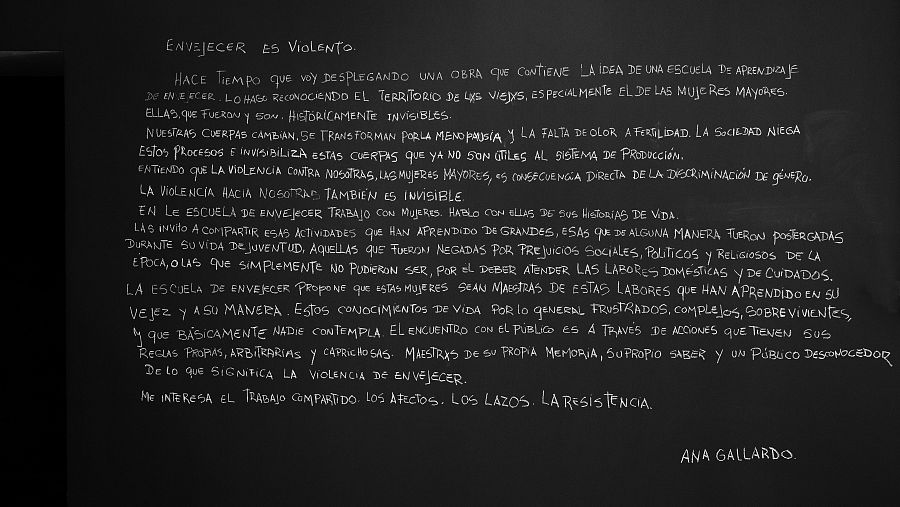 ENVEJECER ES VIOLENTO.
HACE TIEMPO QUE VOY DESPLEGANDO UNA OBRA QUE CONTIENE LA IDEA DE UNA ESCUELA DE APRENDIZAJE
DE ENVEJECER. LO HAGO RECONOCIENDO EL TERRITORIO DE LXS VIEJXS, ESPECIALMENTE EL DE LAS MUJERES MAYORES.
ELLAS, QUE FUERON Y SON, HISTÓRICAMENTE INVISIBLES.
NUESTRAS CUERPAS CAMBIAN, SE TRANSFORMAN POR LA MENOPAUSIA Y LA FALTA DE OLOR A FERTILIDAD. LA SOCIEDAD NIEGA
ESTOS PROCESOS E INVISIBILIZA ESTAS CUERPAS QUE YA NO SON ÚTILES AL SISTEMA DE PRODUCCIÓN.
ENTIENDO QUE LA VIOLENCIA CONTRA NOSOTRAS, LAS MUJERES MAYORES, ES CONSECUENCIA DIRECTA DE LA DISCRIMINACIÓN DE GÉNERO.
LA VIOLENCIA HACIA NOSOTRAS TAMBIÉN ES INVISIBLE.
EN LE ESCUELA DE ENVEJECER TRABAJO CON MUJERES. HABLO CON ELLAS DE SUS HISTORIAS DE VIDA.
LAS INVITO A COMPARTIR ESAS ACTIVIDADES QUE HAN APRENDIDO DE GRANDES, ESAS QUE DE ALGUNA MANERA FUERON POSTERGADAS
DURANTE SU VIDA DE JUVENTUD, AQUELLAS QUE FUERON NEGADAS POR PREJUICIOS SOCIALES, POLÍTICOS Y RELIGIOSOS DE LA
ÉPOCA, O LAS QUE SIMPLEMENTE NO PUDIERON SER, POR EL DEBER ATENDER LAS LABORES DOMÉSTICAS Y DE CUIDADOS.
LA ESCUELA DE ENVEJECER PROPONE QUE ESTAS MUJERES SEAN MAESTRAS DE ESTAS LABORES QUE HAN APRENDIDO EN SU
VEJEZ Y A SU MANERA. ESTOS CONOCIMIENTOS DE VIDA POR LO GENERAL FRUSTRADOS, COMPLEJOS, SOBREVIVIENTES,
Y QUE BÁSICAMENTE NADIE CONTEMPLA. EL ENCUENTRO CON EL PÚBLICO ES A TRAVÉS DE ACCIONES QUE TIENEN SUS
REGLAS PROPIAS, ARBITRARIAS Y CAPRICHOSAS. MAESTRAS DE SU PROPIA MEMORIA, SU PROPIO SABER Y UN PÚBLICO DESCONOCEDOR
DE LO QUE SIGNIFICA LA VIOLENCIA DE ENVEJECER.
ME INTERESA EL TRABAJO COMPARTIDO. LOS AFECTOS. LOS LAZOS. LA RESISTENCIA.
ANA GALLARDO.